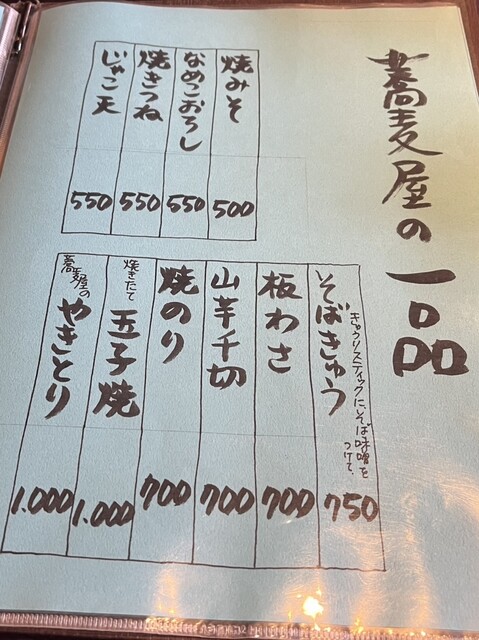 蕎麦屋の一品
焼みそ 500
なめこおろし 550
焼きつね 550
じゃこ天 550
そばきゅう 750
きゅうりスティックに、そば味噌をつけて、
板わさ 700
山芋千切 700
焼のり 700
焼きたて 玉子焼 1.000
蕎麦屋の やきとり 1.000